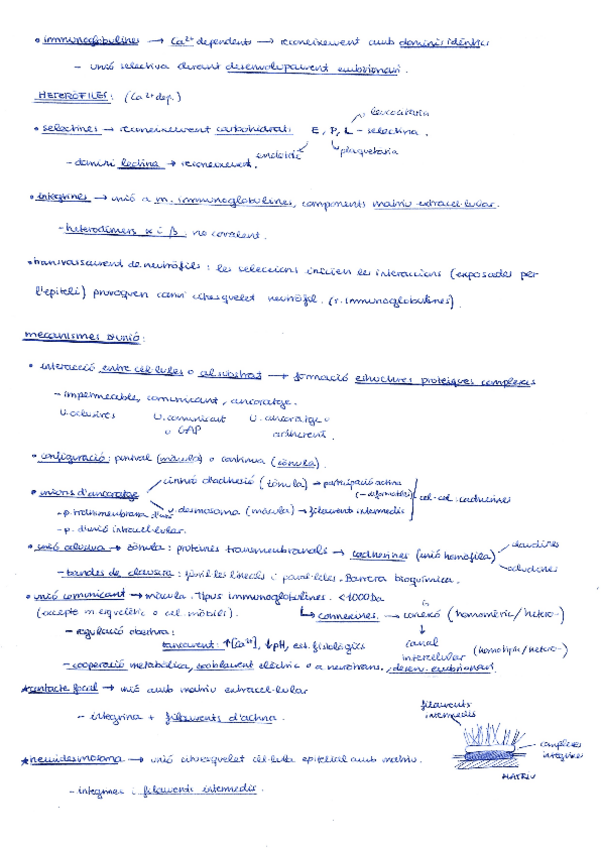 • immunoglobulines → Ca²⁺ dependents → reconeixement amb dominis idèntics
- unió selectiva durant desenvolupament embrionari.
HETERÒFILES: (Ca²⁺ dep.)
leucocitària
• selectines → reconeixement carbohidrats E, P, L - selectina.
endotelis plaquetària
- domini lectina → reconeixement.
• integrines → unió a m. immunoglobulines, components matriu extracel·lular.
- heterodímers α i β no covalent.
• transvassament de neutròfils: les seleccions inicien les interaccions (exposades per
l'epiteli) provoquen canvi citosquelet neutròfil. (s. immunoglobulines).
mecanismes d'unió:
• interacció entre cèl·lules o al substrat → formació estructures proteiques complexes
- impermeable, comunicant, ancoratge.
U. oclusives U. comunicant U. ancoratge
o GAP adherent.
• configuració: puntual (màcula) o contínua (zònula).
cinturó d'adhesió (zònula) → participació actina
• unions d'ancoratge cèl-cèl: cadherines
- p. transmembrana d'unió desmosoma (màcula) → filaments intermedis
- p. d'unió intracel·lular.
• unió oclusiva → zònula: proteïnes transmembranals → cadherines (unió homòfila) claudines
ocludines
- bandes de clausura: fines lineals i paral·leles. Barrera bioquímica.
• unió comunicant → màcula. Tipus immunoglobulines. <1000 Da
(excepte m esquelètic o cèl. mòbils). connexines → connexó (homomèric/hetero-)
- regulació obertura:
tancament: ↑[Ca²⁺], ↓pH, est. fisiològics canal intercel·lular (homotípic/hetero-)
- cooperació metabòlica, acoblament elèctric o a neurotrans, desenv. embrionari.
★ contacte focal → unió amb matriu extracel·lular
- integrina + filaments d'actina.
filaments
intermedis
complexes
integrines
MATRIU
★ hemidesmosoma → unió citoesquelet cèl·lula epitelial amb matriu.
- integrines i filaments intermedis.